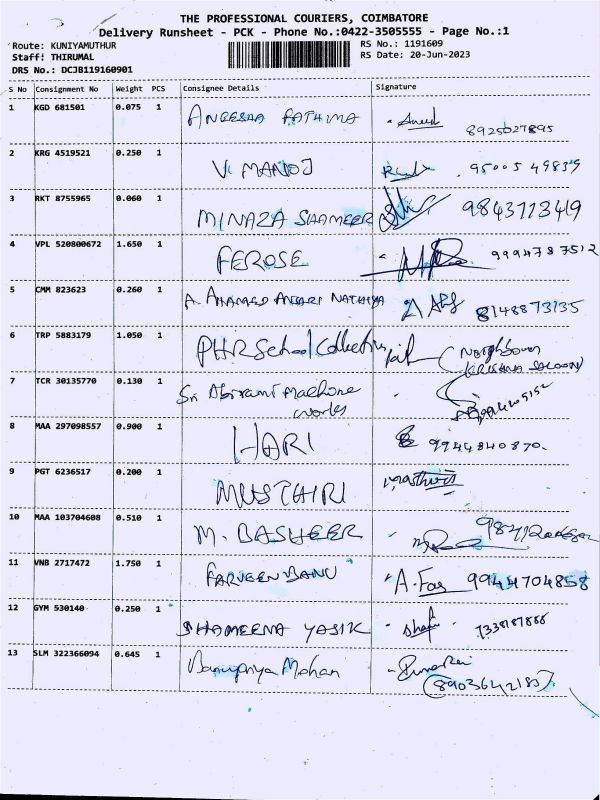 THE PROFESSIONAL COURIERS, COIMBATORE
Delivery Runsheet - PCK - Phone No.:0422-3505555 - Page No.:1
Route: KUNIYAMUTHUR
RS No.: 1191609
Staff: THIRUMAL
RS Date: 20-Jun-2023
DRS No.: DCJB119160901
S No Consignment No Weight PCS Consignee Details Signature
1 KGD 681501 0.075 1 FATHIMA 8925027895
2 KRG 4519521 0.250 1 V. MANOJ 95005 49839
3 RKT 8755965 0.060 1 MINAZA SHAMEER 9843773419
4 VPL 520800672 1.650 1 FEROSE 9994787512
5 CMM 823623 0.260 1 A. AHAMED ANSARI NATHIYA 8148873135
6 TRP 5883179 1.050 1 PHR School (Neighbour
KRISHNA SALOON)
7 TCR 30135770 0.130 1 Sri Abirami Machine
works
8 MAA 297098557 0.900 1 HARI 9944340870.
9 PGT 6236517 0.200 1 MUSTHIRI
10 MAA 103704608 0.510 1 M. BASHEER
11 VNB 2717472 1.750 1 FARVEEN BANU A. Fas 9944704858
12 GYM 530140 0.250 1 SHAMEENA YASIK 7338187886
13 SLM 322366094 0.645 1 Mohan
(8903642185).